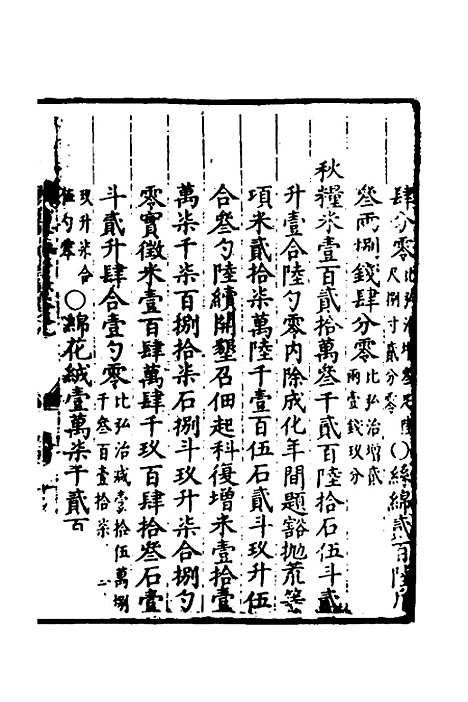 肆分零比弘治增叁尺陸尺捌寸貳分零〇絲綿貳百陸斤
叁兩捌錢肆分零比弘治增貳兩壹錢玖分
秋糧米壹百貳拾萬叁千貳百陸拾石伍斗貳
升壹合陸勺零內除成化年間題豁拋荒等
項米貳拾柒萬陸千壹百伍石貳斗玖升伍
合叁勺陸續開墾召佃起科復增米壹拾壹
萬柒千柒百捌拾柒石捌斗玖升柒合捌勺
零實徵米壹百肆萬肆千玖百肆拾叁石壹
斗貳升肆合壹勺零比弘治減壹拾伍萬捌千叁百壹拾柒
玖升柒合伍勺零〇綿花絨壹萬柒千貳百